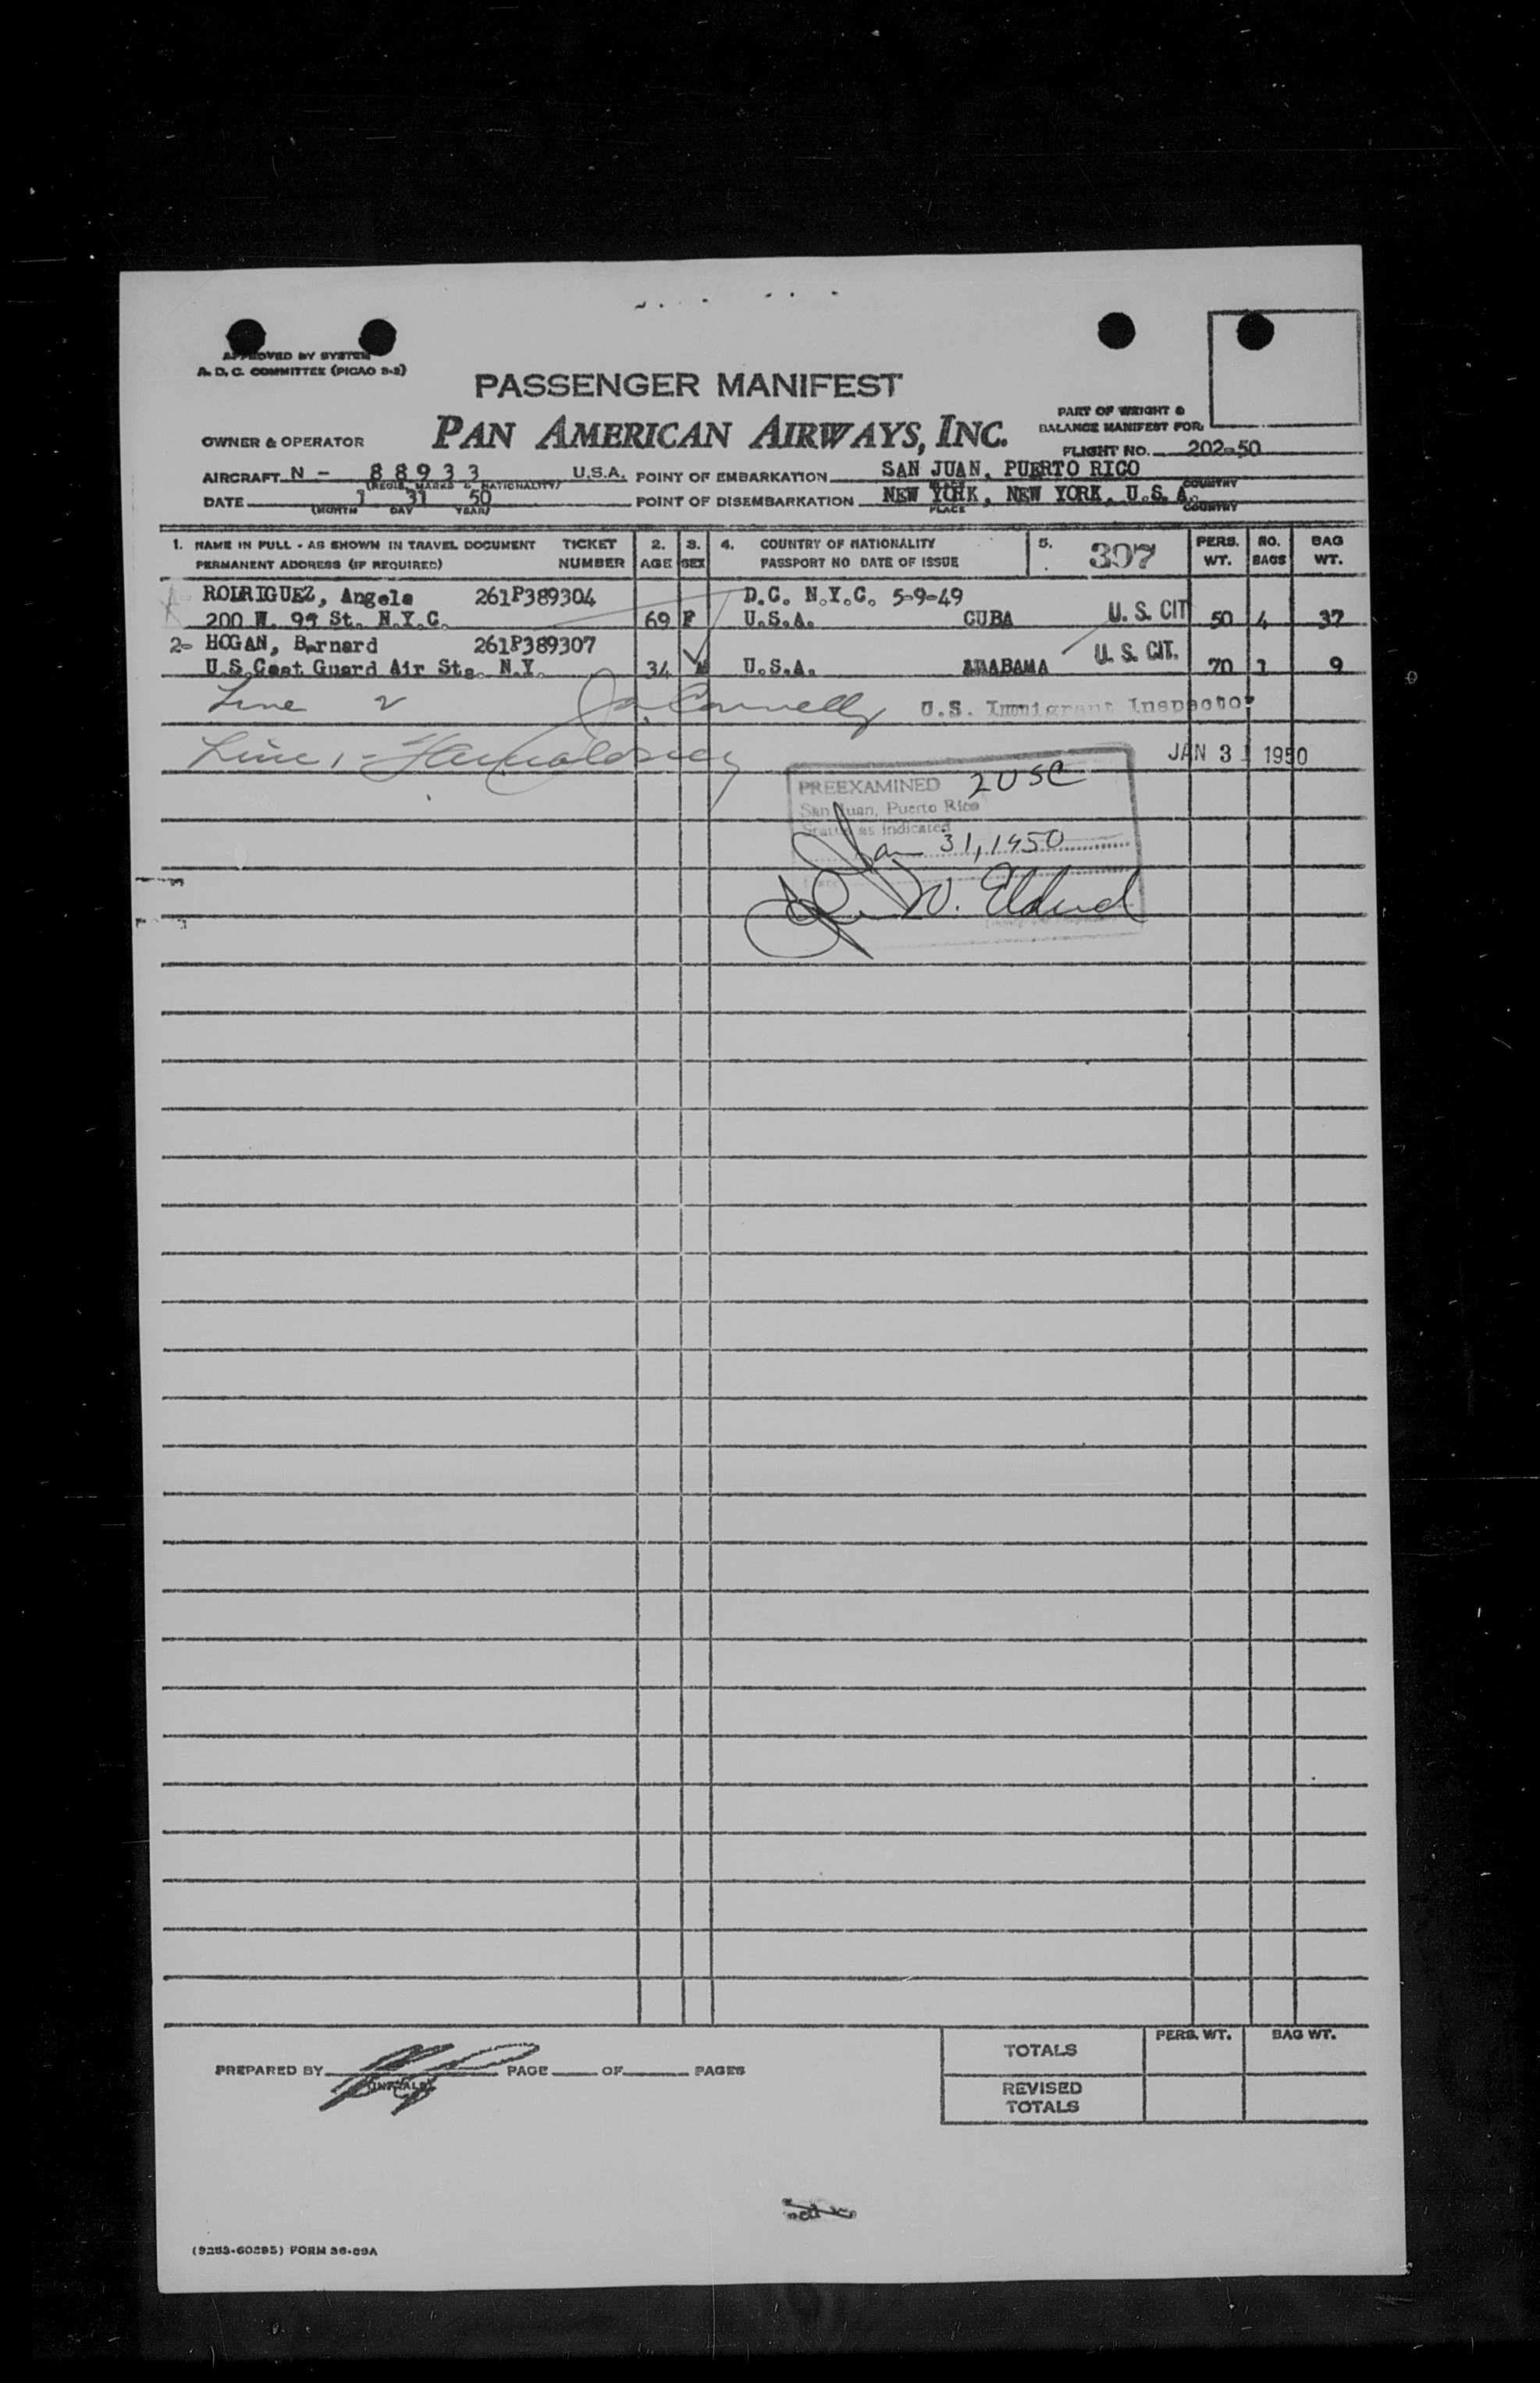 APPROVED BY SYSTEM
A. D. C. COMMITTEE (PICAO 9-2)
PASSENGER MANIFEST
PART OF WEIGHT &
BALANCE MANIFEST FOR:
OWNER & OPERATOR PAN AMERICAN AIRWAYS, INC.
FLIGHT NO. 202-50
AIRCRAFT N - 88933 U.S.A. POINT OF EMBARKATION SAN JUAN, PUERTO RICO
(REGIS. MARKS & NATIONALITY) COUNTRY
DATE 1 31 50 POINT OF DISEMBARKATION NEW YORK, NEW YORK, U.S.A.
(MONTH DAY YEAR) PLACE COUNTRY
1. NAME IN FULL - AS SHOWN IN TRAVEL DOCUMENT TICKET 2. 3. 4. COUNTRY OF NATIONALITY 5. 397 PERS. NO. BAG
PERMANENT ADDRESS (IF REQUIRED) NUMBER AGE SEX PASSPORT NO DATE OF ISSUE WT. BAGS WT.
RODRIGUEZ, Angela 261P389304 D.C. N.Y.C. 5-9-49
200 W. 95 St. N.Y.C. 69 F U.S.A. CUBA U.S. CIT 50 4 37
2- HOGAN, Bernard 261P389307
U.S.Coast Guard Air Sta. N.Y. 34 M U.S.A. ALABAMA U.S. CIT. 70 1 9
Line 2 Connelly U.S. Immigrant Inspector
Line 1 -
JAN 31 1950
PREEXAMINED 2 USC
San Juan, Puerto Rico
Status as indicated
Jan 31, 1950
W.
PREPARED BY PAGE OF PAGES
(INITIALS)
PERS. WT. BAG WT.
TOTALS
REVISED
TOTALS
FORM 36-89A